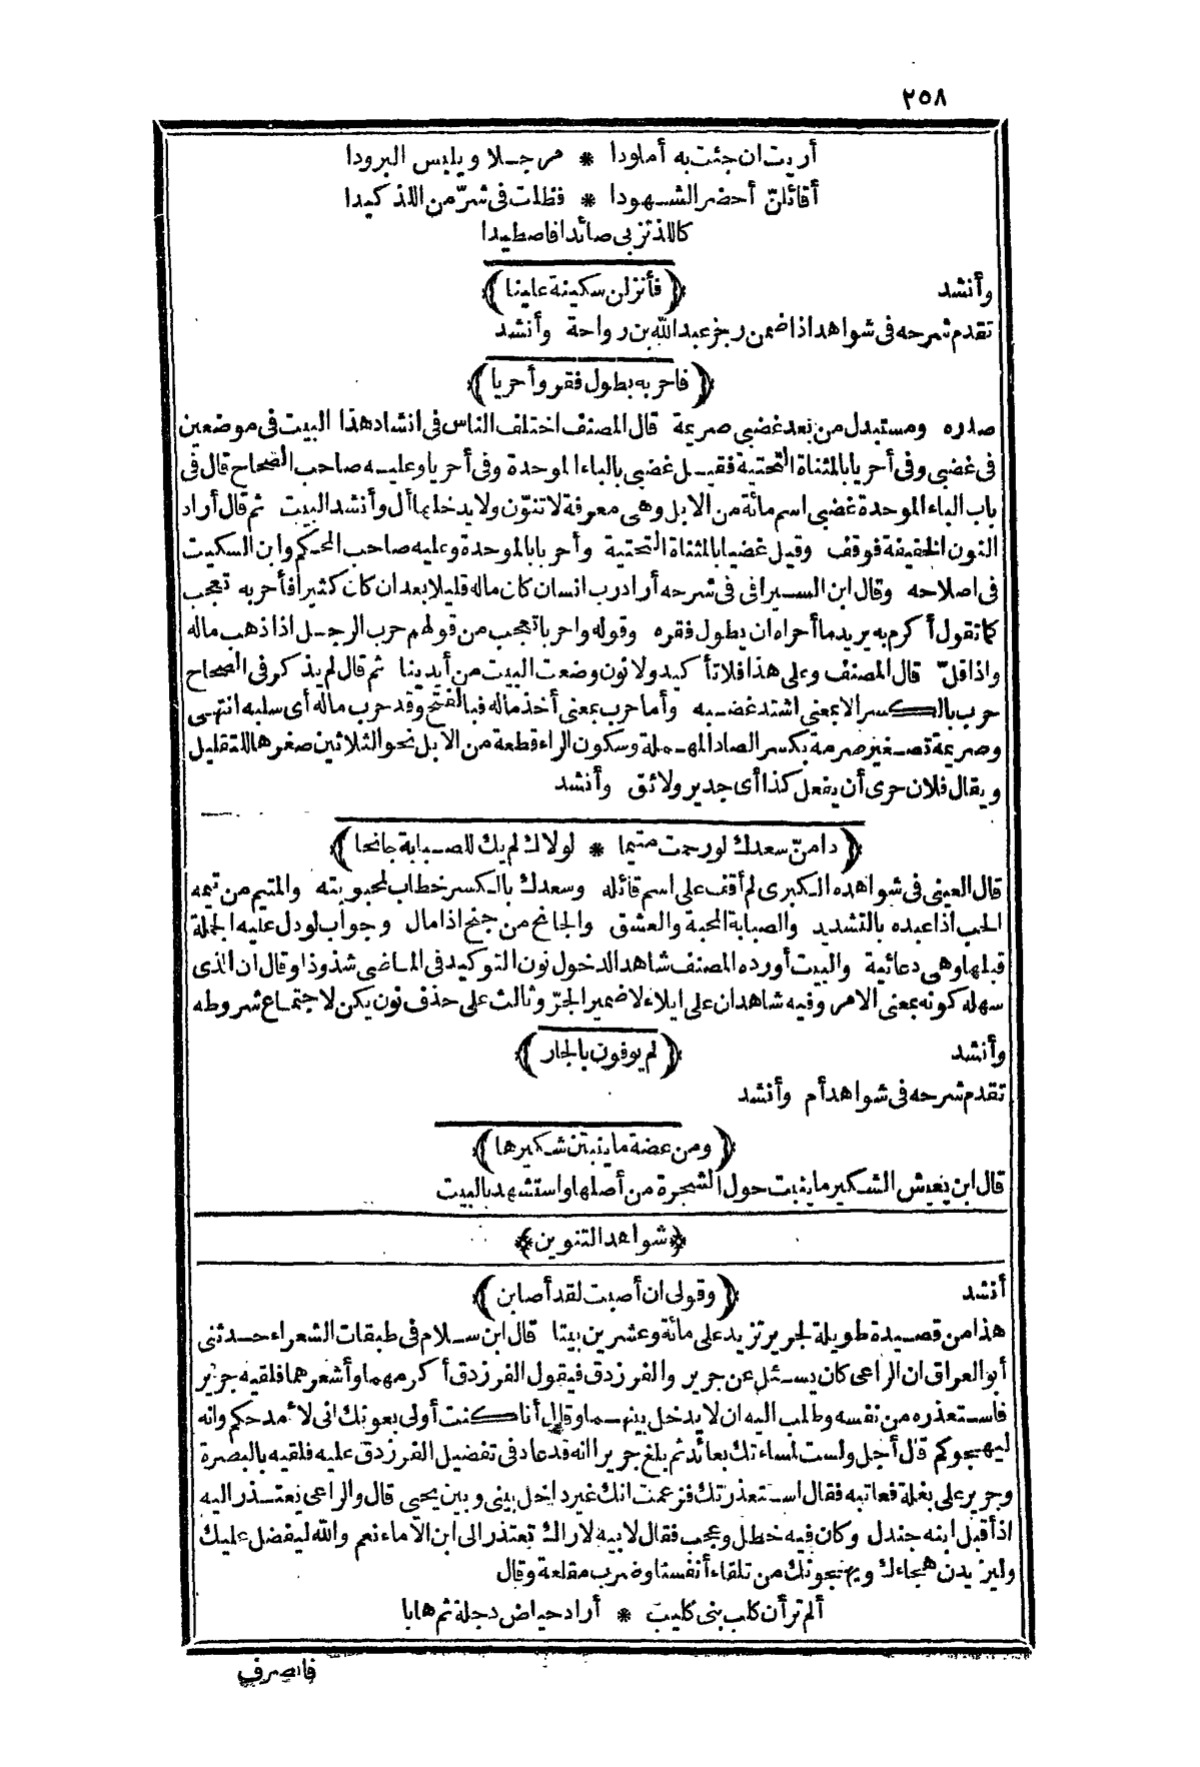 ٢٥٨
أريت ان جئت به أملودا * مرجلا ويلبس البرودا
أقائلنّ أحضر الشهودا * فظلت فى شرّ من اللذ كيدا
كاللذ تزبى صائدا فاصطيدا
وأنشد ﴿فأنزلن سكينة علينا﴾
تقدم شرحه فى شواهد اذا ضمن رجز عبد الله بن رواحة وأنشد
﴿فاحر به بطول فقر وأحريا﴾
صدره ومستبدل من بعد غضبى صريمة قال المصنف اختلف الناس فى انشاد هذا البيت فى موضعين
فى غضبى وفى أحريا بالمثناة التحتية فقيل غضبى بالباء الموحدة وفى أحريا وعليه صاحب الصحاح قال فى
باب الباء الموحدة غضبى اسم مائة من الابل وهى معرفة لا تنوّن ولا يدخلها أل وأنشد البيت ثم قال أراد
النون الخفيفة فوقف وقيل غضيا بالمثناة التحتية وأحربا بالموحدة وعليه صاحب المحكم وابن السكيت
فى اصلاحه وقال ابن السيرافى فى شرحه أراد رب انسان كان ماله قليلا بعد ان كان كثيرا فأحر به تعجب
كما تقول أكرم به يريد ما أحراه ان يطول فقره وقوله واحربا تعجب من قولهم حرب الرجل اذا ذهب ماله
واذا قلّ قال المصنف وعلى هذا فلا تأكيد ولا نون وضعت البيت من أيدينا ثم قال لم يذكر فى الصحاح
حرب بالكسر الا بمعنى اشتد غضبه وأما حرب بمعنى أخذ ماله فبالفتح وقد حرب ماله أى سلبه انتهى
وصريمة تصغير صرمة بكسر الصاد المهملة وسكون الراء قطعة من الابل نحو الثلاثين صغرها للتقليل
ويقال فلان حرى أن يفعل كذا أى جدير ولائق وأنشد
﴿دامنّ سعدك لو رحمت متيما * لولاك لم يك للصبابة جانحا﴾
قال العينى فى شواهده الكبرى لم أقف على اسم قائله وسعدك بالكسر خطاب لمحبوبته والمتيم من تيمه
الحب اذا عبده بالتشديد والصبابة المحبة والعشق والجانح من جنح اذا مال وجواب لو دل عليه الجملة
قبلها وهى دعائية والبيت أورده المصنف شاهدا لدخول نون التوكيد فى الماضى شذوذا وقال ان الذى
سهله كونه بمعنى الامر وفيه شاهدان على ايلاء لا ضمير الجرّ وثالث على حذف نون يكن لاجتماع شروطه
وأنشد ﴿لم يوفون بالجار﴾
تقدم شرحه فى شواهد أم وأنشد
﴿ومن عضة ما ينبتن شكيرها﴾
قال ابن يعيش الشكير ما ينبت حول الشجرة من أصلها واستشهد بالبيت
﴿شواهد التنوين﴾
أنشد ﴿وقولى ان أصبت لقد أصابن﴾
هذا من قصيدة طويلة لجرير تزيد على مائة وعشرين بيتا قال ابن سلام فى طبقات الشعراء حدثنى
أبو العراق ان الراعى كان يسئل عن جرير والفرزدق فيقول الفرزدق أكرمهما وأشعرهما فلقيه جرير
فاستعذره من نفسه وطلب اليه ان لا يدخل بينهما وقال أنا كنت أولى بعونك انى لأمدحكم وانه
ليهجوكم قال أجل ولست لمساءتك بعائد ثم بلغ جريرا انه قد عاد فى تفضيل الفرزدق عليه فلقيه بالبصرة
وجرير على بغلة فعاتبه فقال استعذرتك فزعمت انك غير داخل بينى وبين يحيى قال والراعى يعتذر اليه
اذ أقبل ابنه جندل وكان فيه خطل وعجب فقال لابيه لاراك تعتذر الى ابن الاماء نعم والله ليفضل عليك
وليزيدن هجاءك ويهجونك من تلقاء أنفسنا وضرب مقلعة وقال
ألم تر أن كلب بنى كليب * أراد حياض دجلة ثم هابا
فانصرف